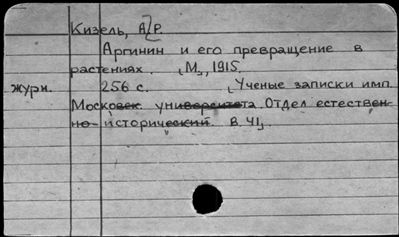 Кизель, А. Р.
Аргинин и его превращение в
растениях. М., 1915.
журн. 256 с. Ученые записки имп.
Московск. университета. Отдел естествен-
но-исторический. В. 41.